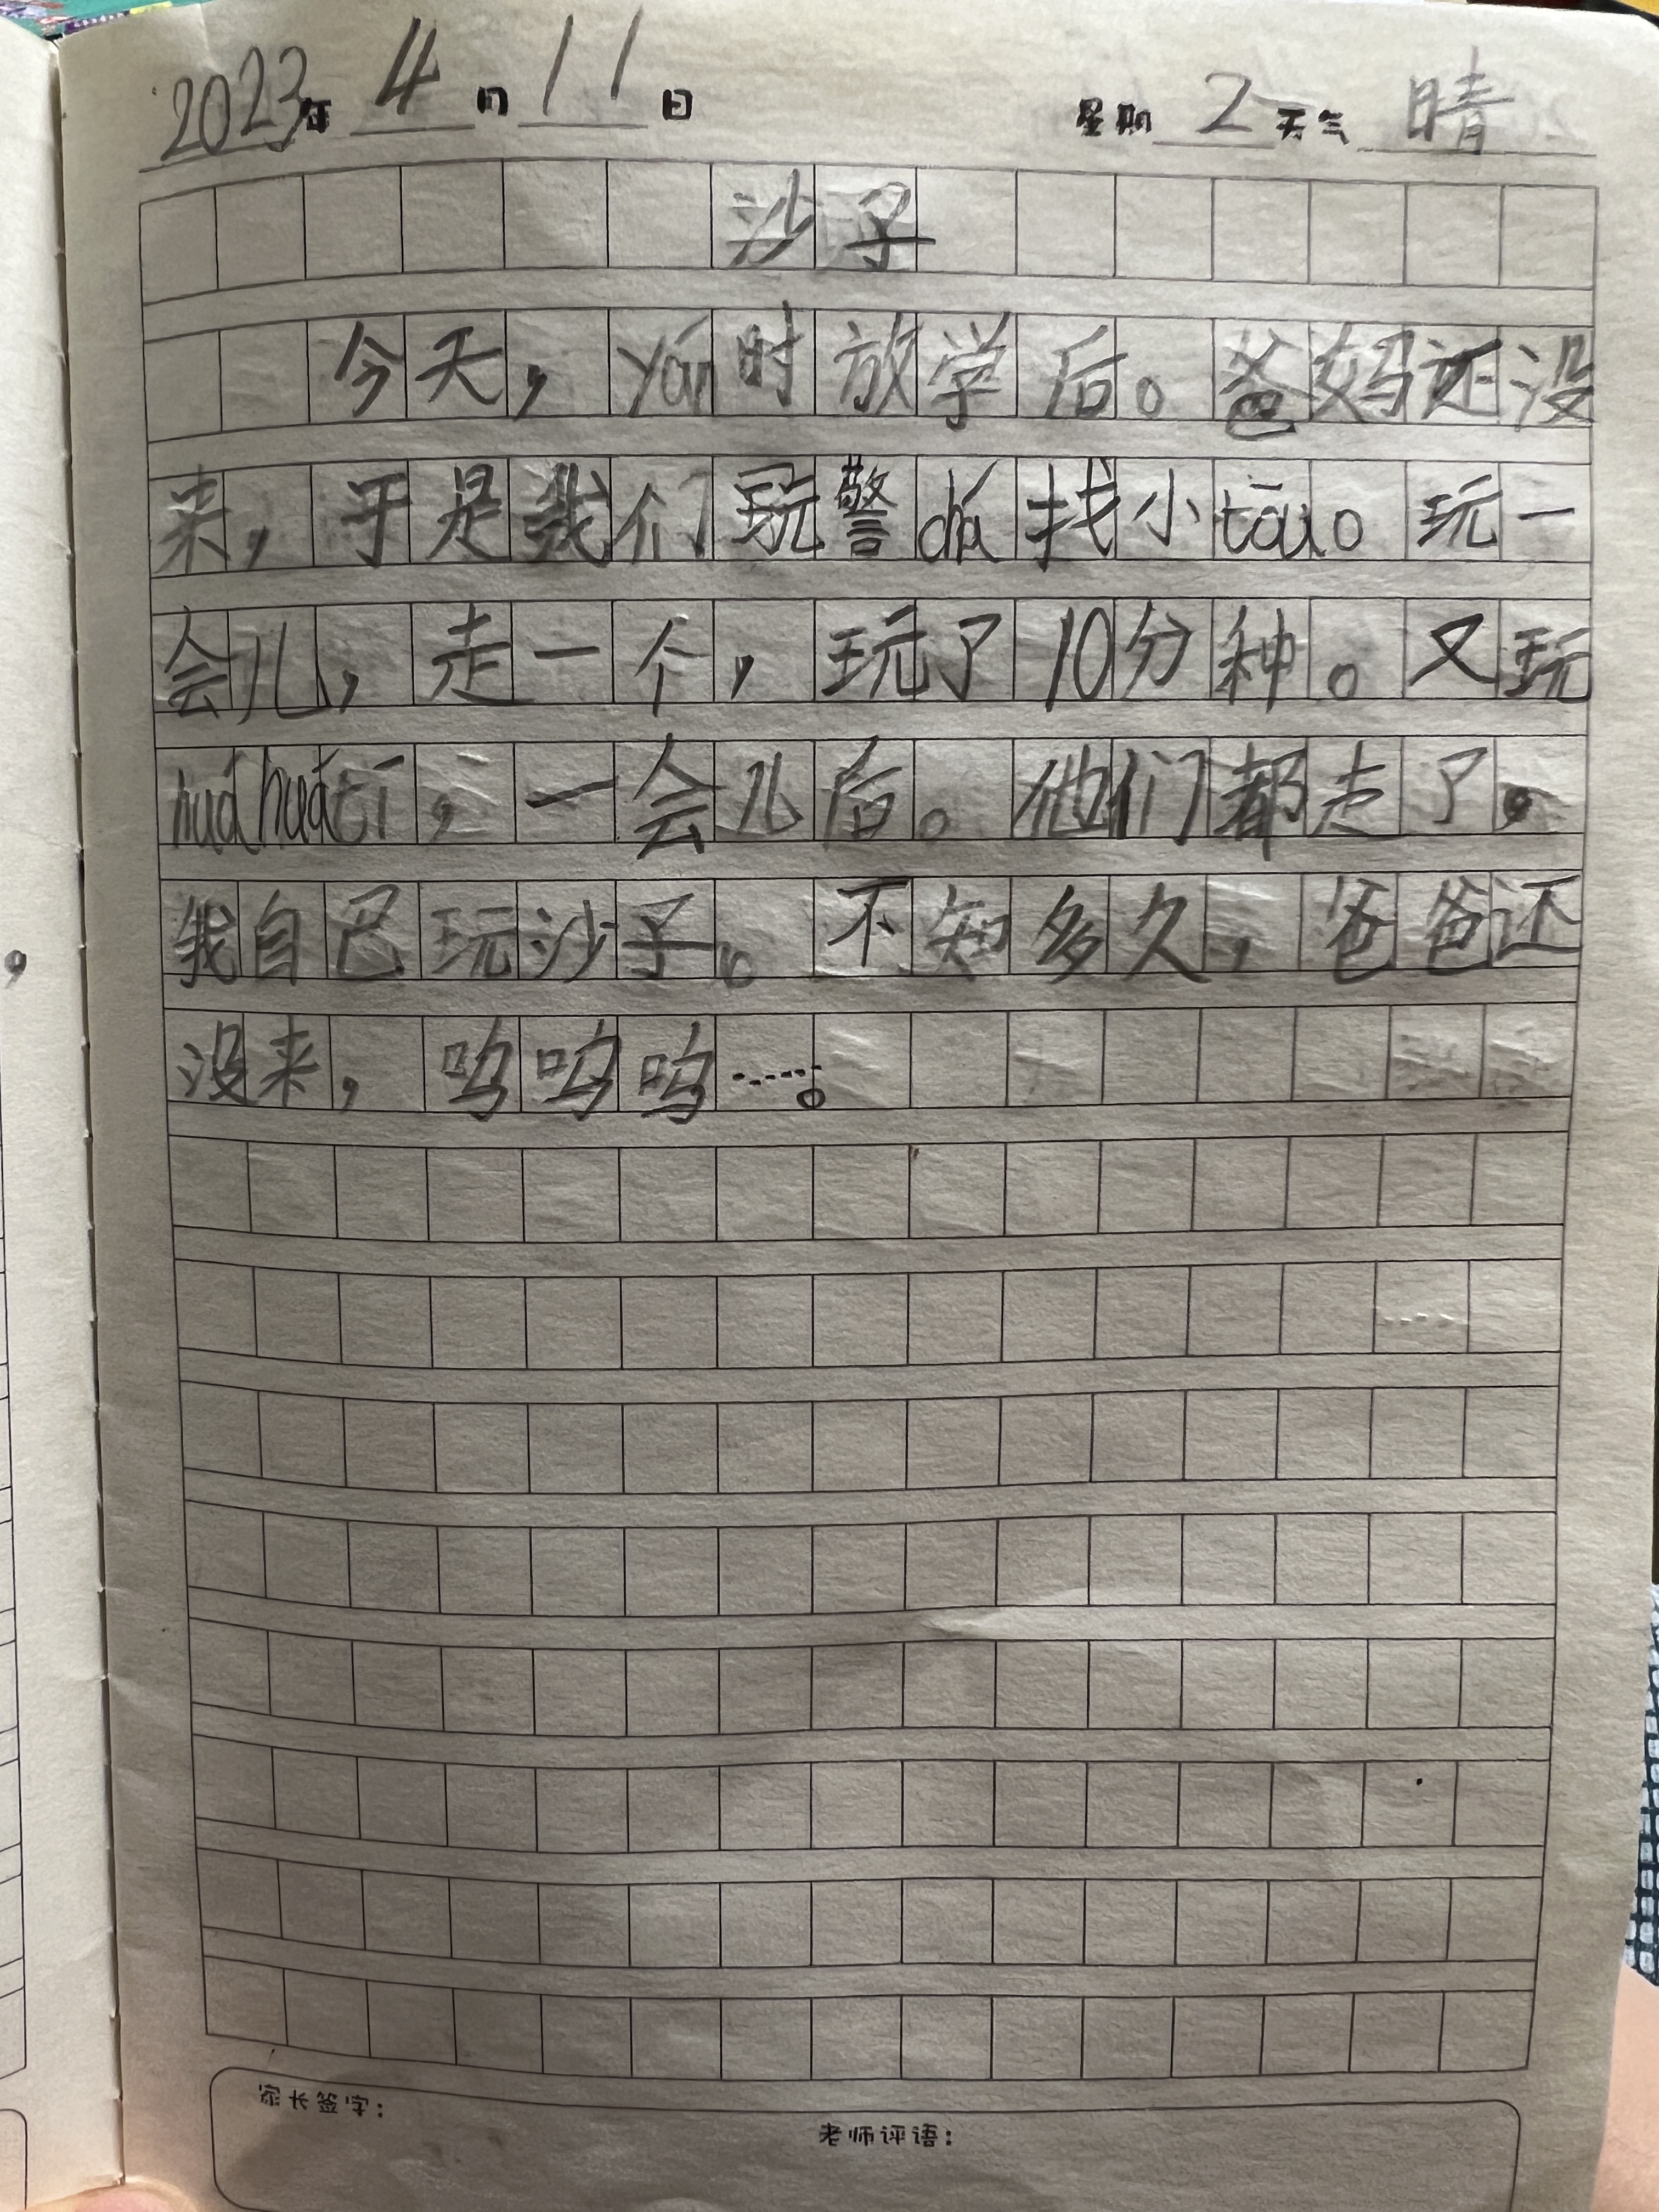 2023年 4 月 11 日 星期 2 天气 晴
沙子
今天，yán时放学后。爸妈还没
来，于是我们玩警chá找小tōu。玩一
会儿，走一个，玩了10分种。又玩
huá huátī，一会儿后。他们都走了。
我自己玩沙子。不知多久，爸爸还
没来，呜呜呜……。
，
家长签字：
老师评语：